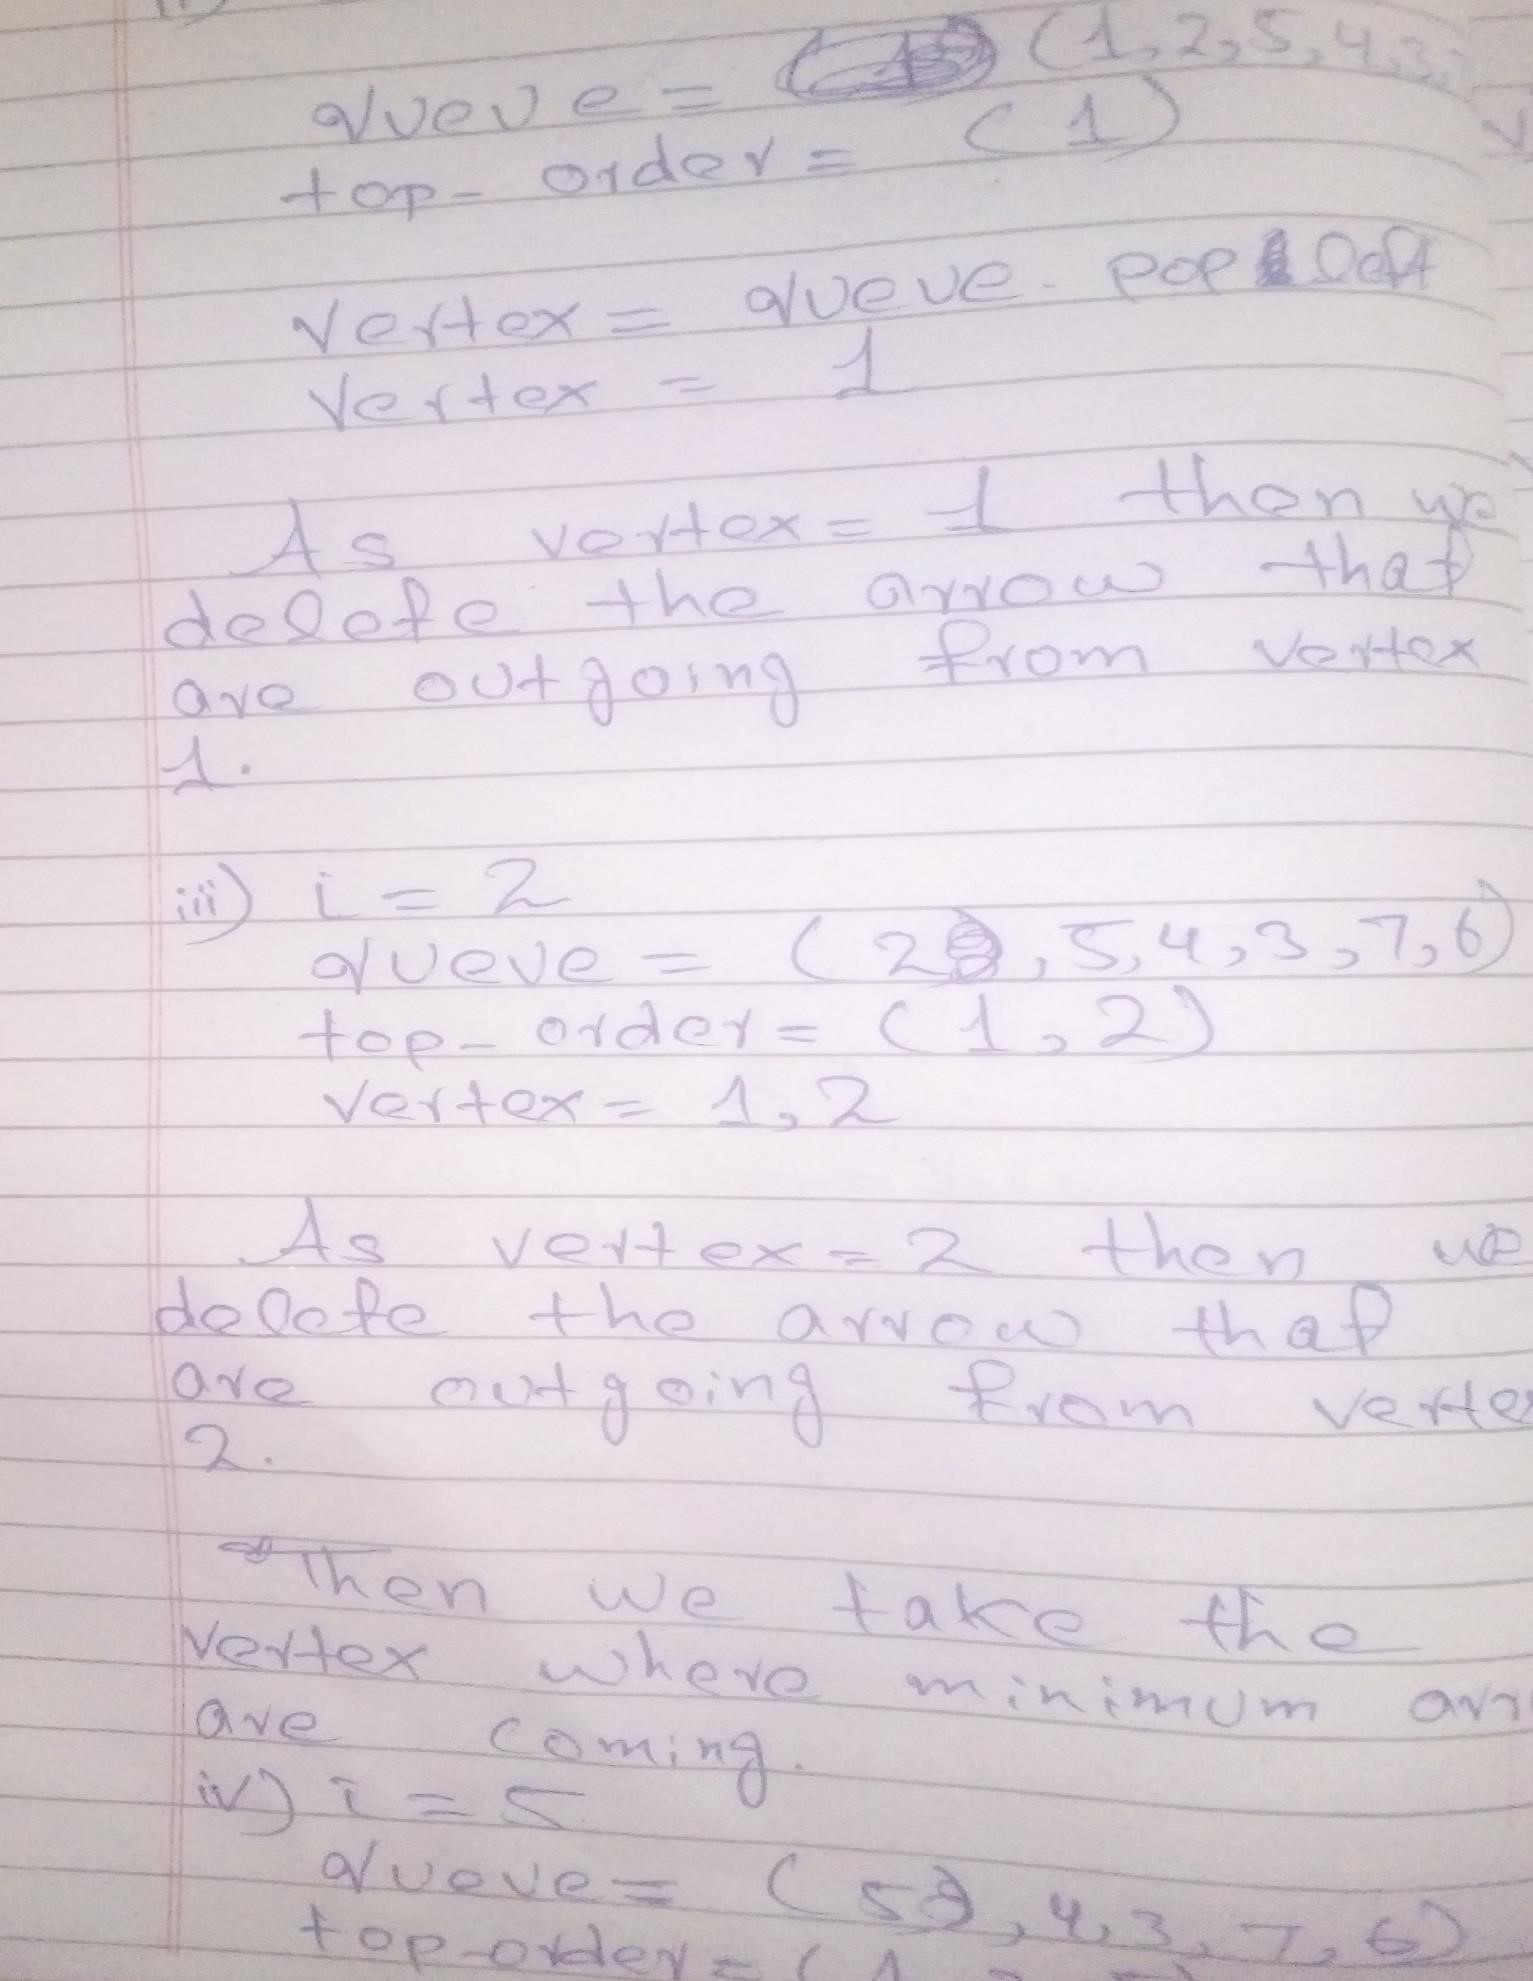 queue = (1,2,5,4,3,
top- order = (1)
vertex = queue. pop left
vertex = 1
As vertex = 1 then we
delete the arrow that
are outgoing from vertex
1.
iii) i = 2
queue = (2, 5, 4, 3, 7, 6)
top- order = (1, 2)
vertex = 1, 2
As vertex = 2 then we
delete the arrow that
are outgoing from verte
2.
Then we take the
vertex where minimum arr
are coming.
iv) i = 5
queue = (5, 4, 3, 7, 6)
top-order = (1